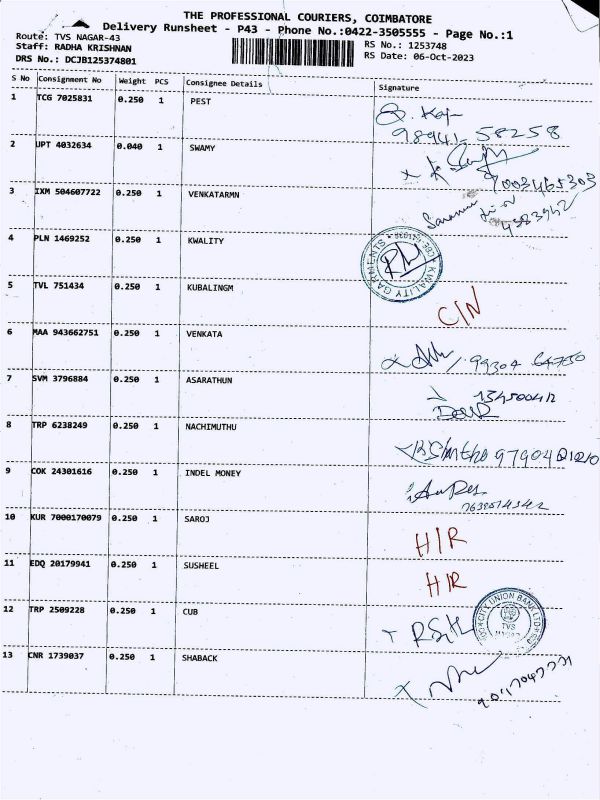 THE PROFESSIONAL COURIERS, COIMBATORE
Delivery Runsheet - P43 - Phone No.:0422-3505555 - Page No.:1
Route: TVS NAGAR-43
RS No.: 1253748
Staff: RADHA KRISHNAN
RS Date: 06-Oct-2023
DRS No.: DCJB125374801
S No Consignment No Weight PCS Consignee Details Signature
1 TCG 7025831 0.250 1 PEST
98941-58258
2 UPT 4032634 0.040 1 SWAMY
7003465303
3 IXM 504607722 0.250 1 VENKATARMN
4 PLN 1469252 0.250 1 KWALITY
KWALITY GARMENTS
5 TVL 751434 0.250 1 KUBALINGM
C/N
6 MAA 943662751 0.250 1 VENKATA
7 SVM 3796884 0.250 1 ASARATHUN
8 TRP 6238249 0.250 1 NACHIMUTHU
9 COK 24301616 0.250 1 INDEL MONEY
10 KUR 7000170079 0.250 1 SAROJ
H/R
11 EDQ 20179941 0.250 1 SUSHEEL
H/R
12 TRP 2509228 0.250 1 CUB
CITY UNION BANK LTD
TVS
13 CNR 1739037 0.250 1 SHABACK